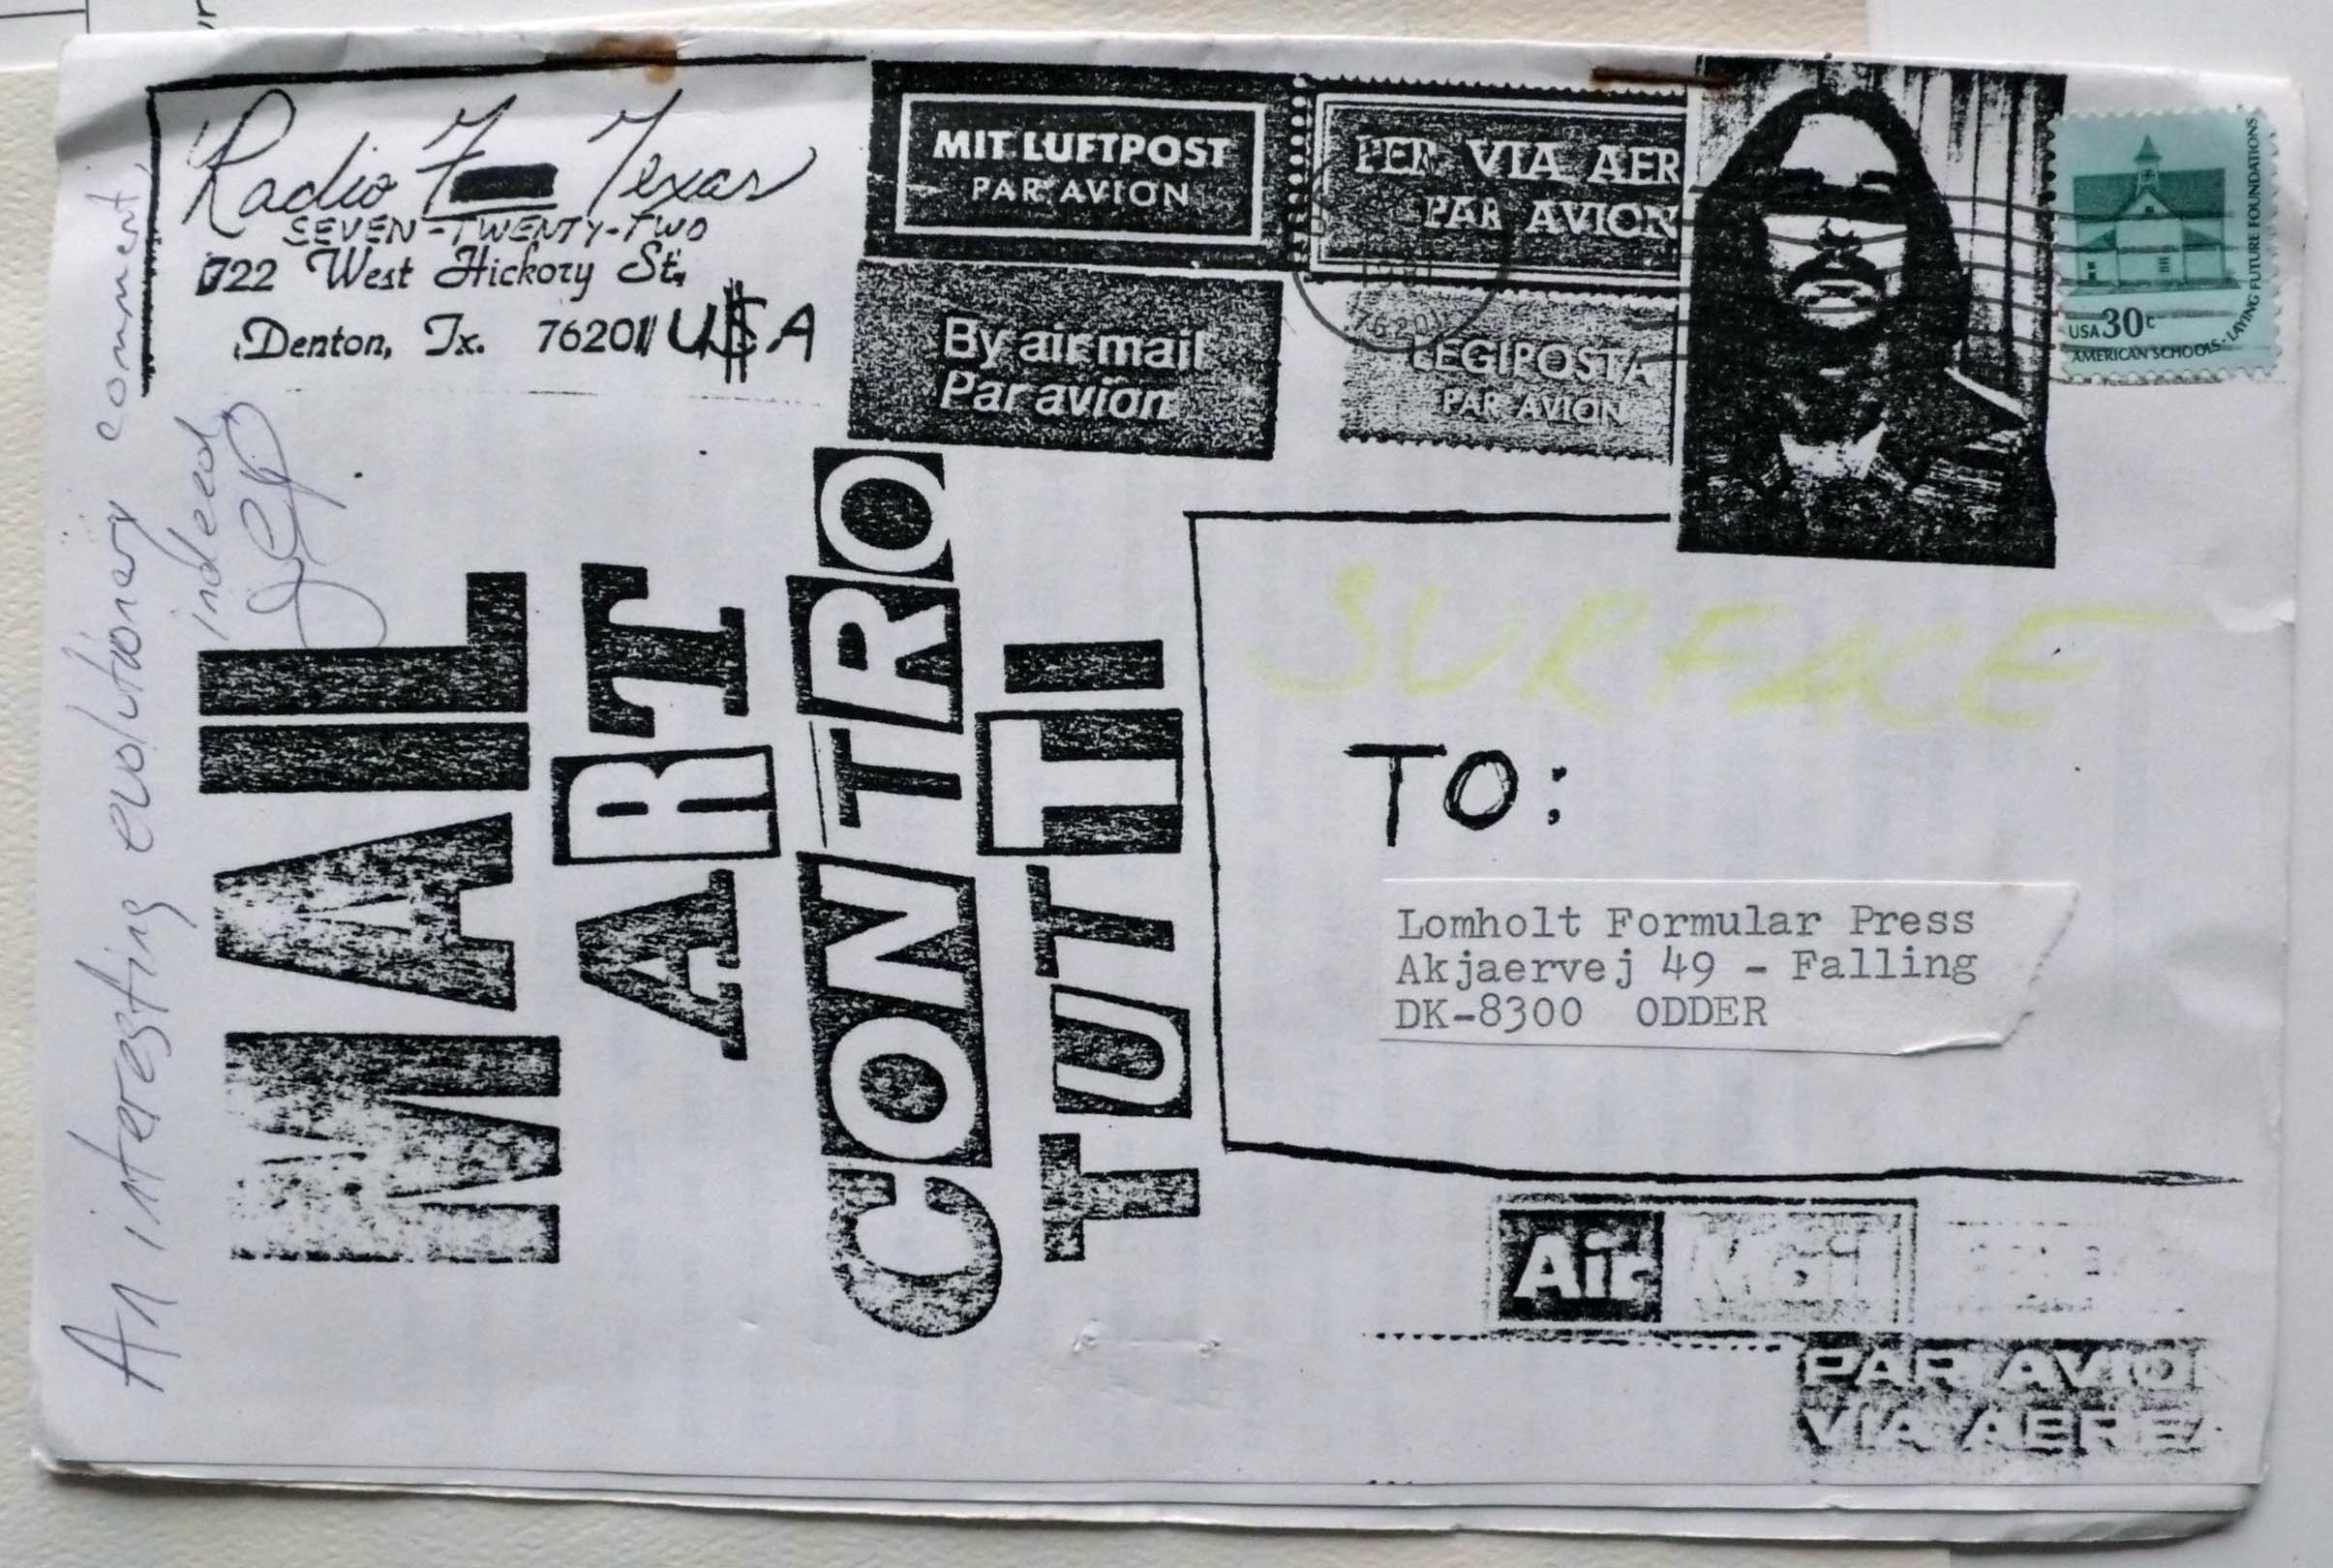 Radio F Texas
SEVEN-TWENTY-TWO
722 West Hickory St.
Denton, Tx. 76201 U$A
MIT LUFTPOST
PAR AVION
PER VIA AER
PAR AVION
By air mail
Par avion
LEGIPOSTA
PAR AVION
76201
USA 30c
AMERICAN SCHOOLS - LAYING FUTURE FOUNDATIONS
An interesting evolutionary comment,
indeed
MAIL
ART
CONTRO
TUTTI
SURFACE
TO:
Lomholt Formular Press
Akjaervej 49 - Falling
DK-8300 ODDER
Air Mail
PAR AVIO
VIA AEREA